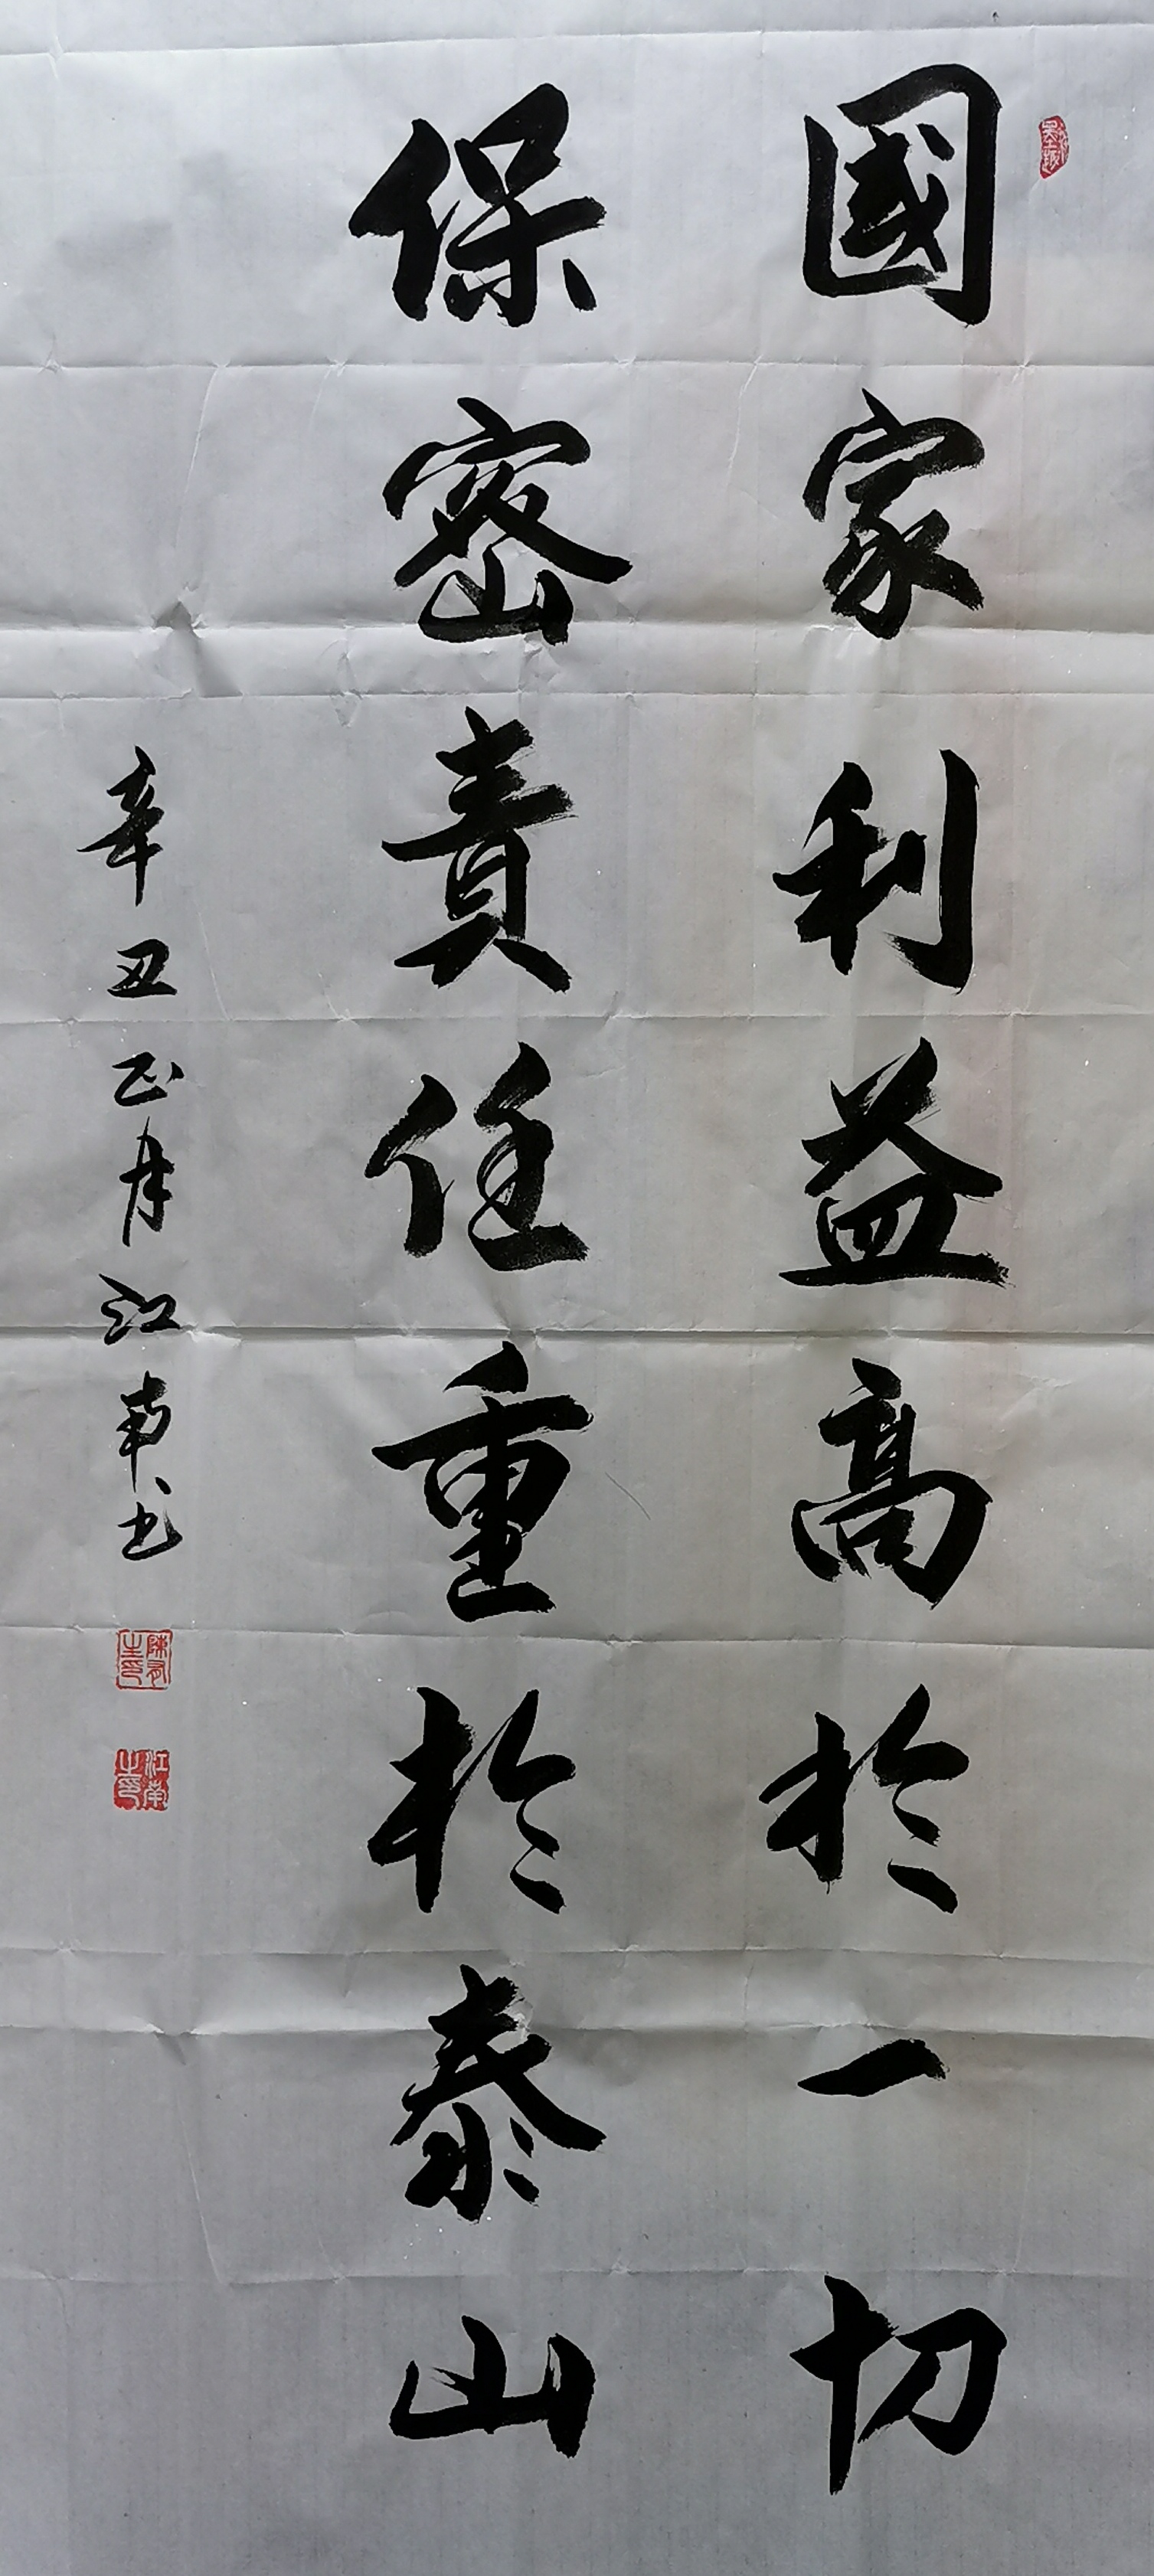 國家利益高於一切
保密責任重於泰山
辛丑正月江南書
江南